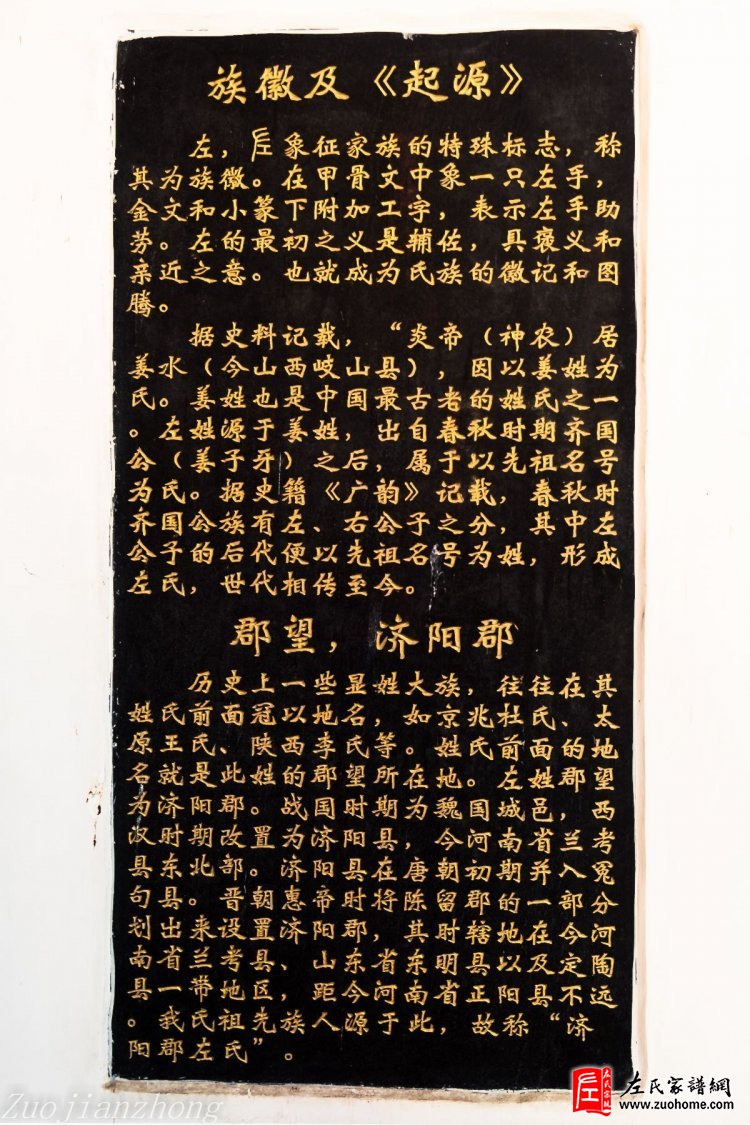 族徽及《起源》
左，𠂇象征家族的特殊标志，称
其为族徽。在甲骨文中象一只左手，
金文和小篆下附加工字，表示左手助
劳。左的最初之义是辅佐，具褒义和
亲近之意。也就成为氏族的徽记和图
腾。
据史料记载，“炎帝（神农）居
姜水（今山西岐山县）因以姜姓为
氏。姜姓也是中国最古老的姓氏之一
。左姓源于姜姓，出自春秋时期齐国
公（姜子牙）之后，属于以先祖名号
为氏。据史籍《广韵》记载，春秋时
齐国公族有左、右公子之分，其中左
公子的后代便以先祖名号为姓，形成
左氏，后世代代相传至今。
郡望，济阳郡
历史上一些显姓大族，往往在其
姓氏前面冠以地名，如京兆杜氏、太
原王氏、陕西李氏等。姓氏前面的地
名就是此姓的郡望所在地。左姓郡望
为济阳郡。战国时期为魏国城邑，西
汉时期改置为济阳县，今河南省兰考
县东北部。济阳县在唐朝初期并入冤
句县。晋朝惠帝时将陈留郡的一部分
划出来设置济阳郡，其时辖地在今河
南省兰考县、山东省东明县以及定陶
县一带地区，距今河南省正阳县不远
。我氏祖先族人源于此，故称“济
阳郡左氏”。
Zuo jianzhong
左氏家譜網
www.zuohome.com